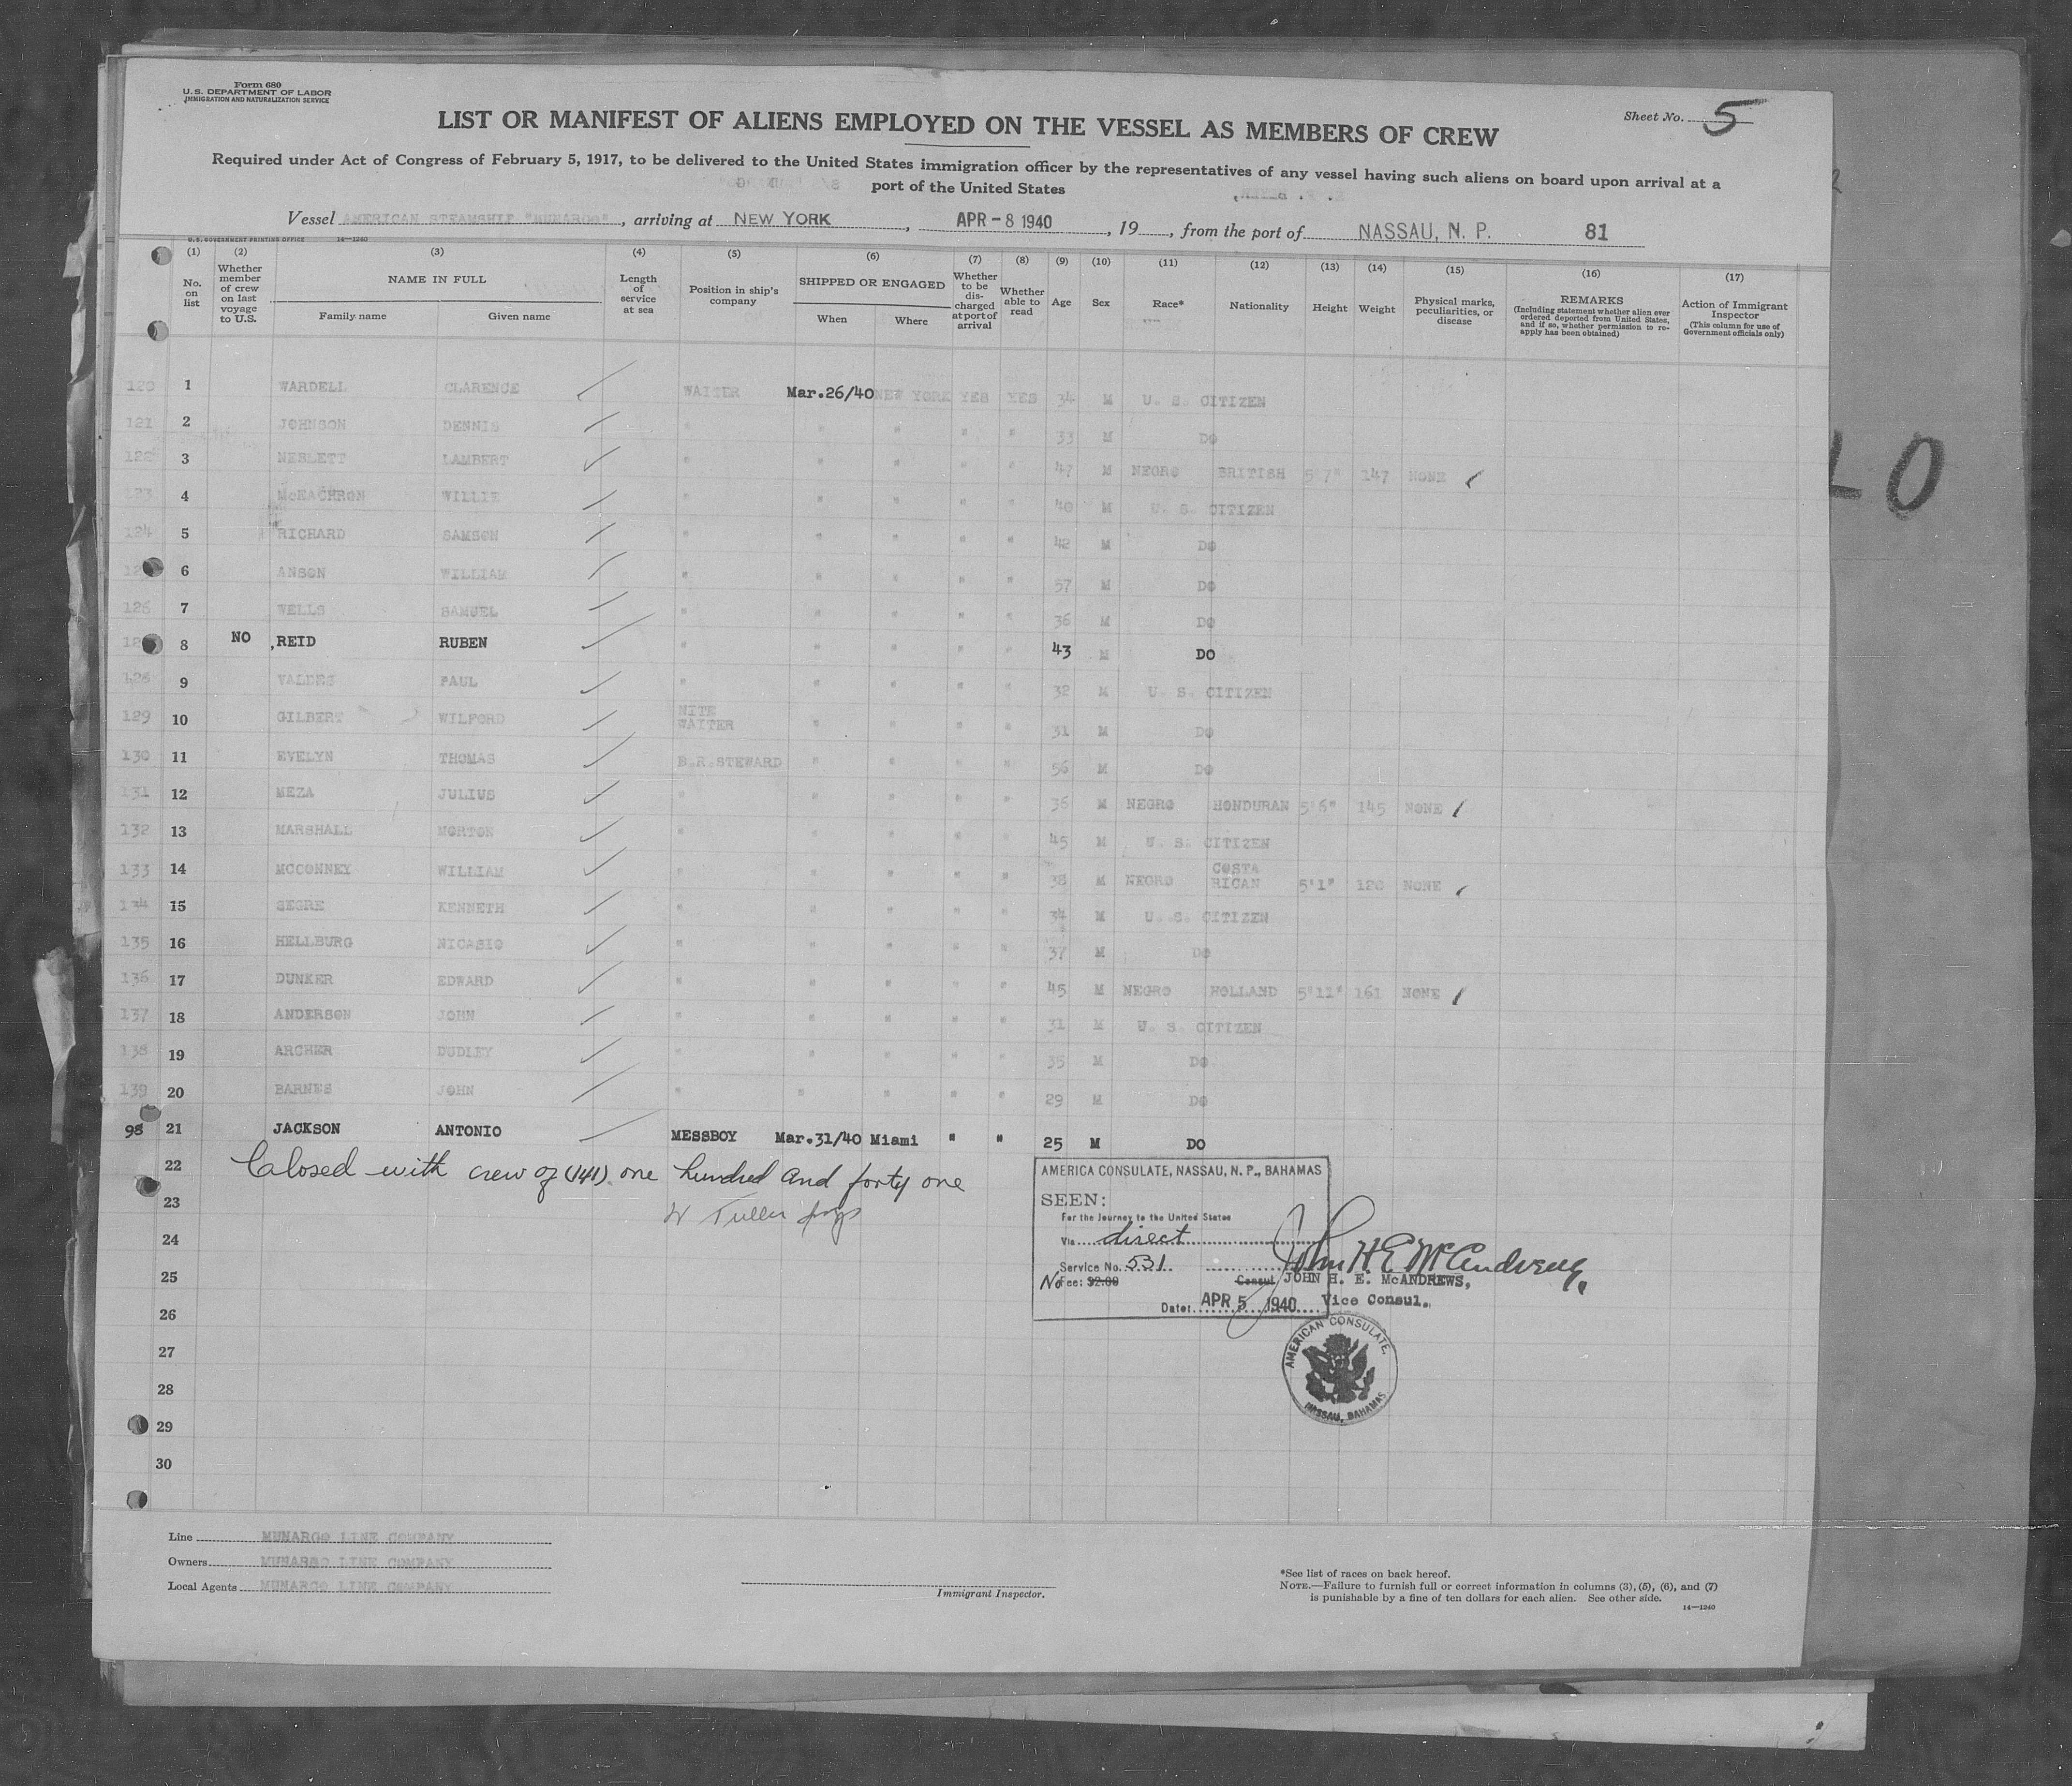 Form 680
U.S. DEPARTMENT OF LABOR
IMMIGRATION AND NATURALIZATION SERVICE
Sheet No. 5
LIST OR MANIFEST OF ALIENS EMPLOYED ON THE VESSEL AS MEMBERS OF CREW
Required under Act of Congress of February 5, 1917, to be delivered to the United States immigration officer by the representatives of any vessel having such aliens on board upon arrival at a
port of the United States
Vessel AMERICAN STEAMSHIP "MUNARGO", arriving at NEW YORK, APR - 8 1940, 19, from the port of NASSAU, N. P. 81
U.S. GOVERNMENT PRINTING OFFICE 14—1240
(1) (2) (3) (4) (5) (6) (7) (8) (9) (10) (11) (12) (13) (14) (15) (16) (17)
No. on list
Whether member of crew on last voyage to U.S.
NAME IN FULL
Family name Given name
Length of service at sea
Position in ship's company
SHIPPED OR ENGAGED
When Where
Whether to be discharged at port of arrival
Whether able to read
Age
Sex
Race*
Nationality
Height
Weight
Physical marks, peculiarities, or disease
REMARKS
(Including statement whether alien ever ordered deported from United States, and if so, whether permission to reapply has been obtained)
Action of Immigrant Inspector
(This column for use of Government officials only)
120 1 WARDELL CLARENCE WAITER Mar.26/40 NEW YORK YES YES 34 M U. S. CITIZEN
121 2 JOHNSON DENNIS " " " " " 33 M DO
122 3 NESLETT LAMBERT " " " " " 47 M NEGRO BRITISH 5'7" 147 NONE
123 4 McEACHRON WILLIE " " " " " 40 M U. S. CITIZEN
124 5 RICHARD SAMSON " " " " " 42 M DO
6 ANSON WILLIAM " " " " " 57 M DO
126 7 WELLS SAMUEL " " " " " 36 M DO
8 NO REID RUBEN " " " " " 43 M DO
128 9 VALDES PAUL " " " " " 32 M U. S. CITIZEN
129 10 GILBERT WILFORD NITE WAITER " " " " 31 M DO
130 11 EVELYN THOMAS B.R.STEWARD " " " " 56 M DO
131 12 MEZA JULIUS " " " " " 36 M NEGRO HONDURAN 5'6" 145 NONE
132 13 MARSHALL NORTON " " " " " 45 M U. S. CITIZEN
133 14 MCCONNEY WILLIAM " " " " " 38 M NEGRO COSTA RICAN 5'1" 120 NONE
134 15 SEGRE KENNETH " " " " " 34 M U. S. CITIZEN
135 16 HELLBURG NICASIO " " " " " 37 M DO
136 17 DUNKER EDWARD " " " " " 45 M NEGRO HOLLAND 5'11" 161 NONE
137 18 ANDERSON JOHN " " " " " 31 M U. S. CITIZEN
138 19 ARCHER DUDLEY " " " " " 35 M DO
139 20 BARNES JOHN " " " " " 29 M DO
98 21 JACKSON ANTONIO MESSBOY Mar.31/40 Miami " " 25 M DO
22 Closed with crew of (141) one hundred and forty one
23
24
25
26
27
28
29
30
AMERICA CONSULATE, NASSAU, N. P., BAHAMAS
SEEN:
For the Journey to the United States
Via direct
Service No. 531
No Fee: $2.00
John H E McAndrews
Consul JOHN H. E. McANDREWS,
Vice Consul.
Date: APR 5 1940
AMERICAN CONSULATE,
NASSAU, BAHAMAS
Line MUNARGO LINE COMPANY
Owners MUNARGO LINE COMPANY
Local Agents MUNARGO LINE COMPANY
Immigrant Inspector.
*See list of races on back hereof.
NOTE.—Failure to furnish full or correct information in columns (3), (5), (6), and (7)
is punishable by a fine of ten dollars for each alien. See other side.
14—1240